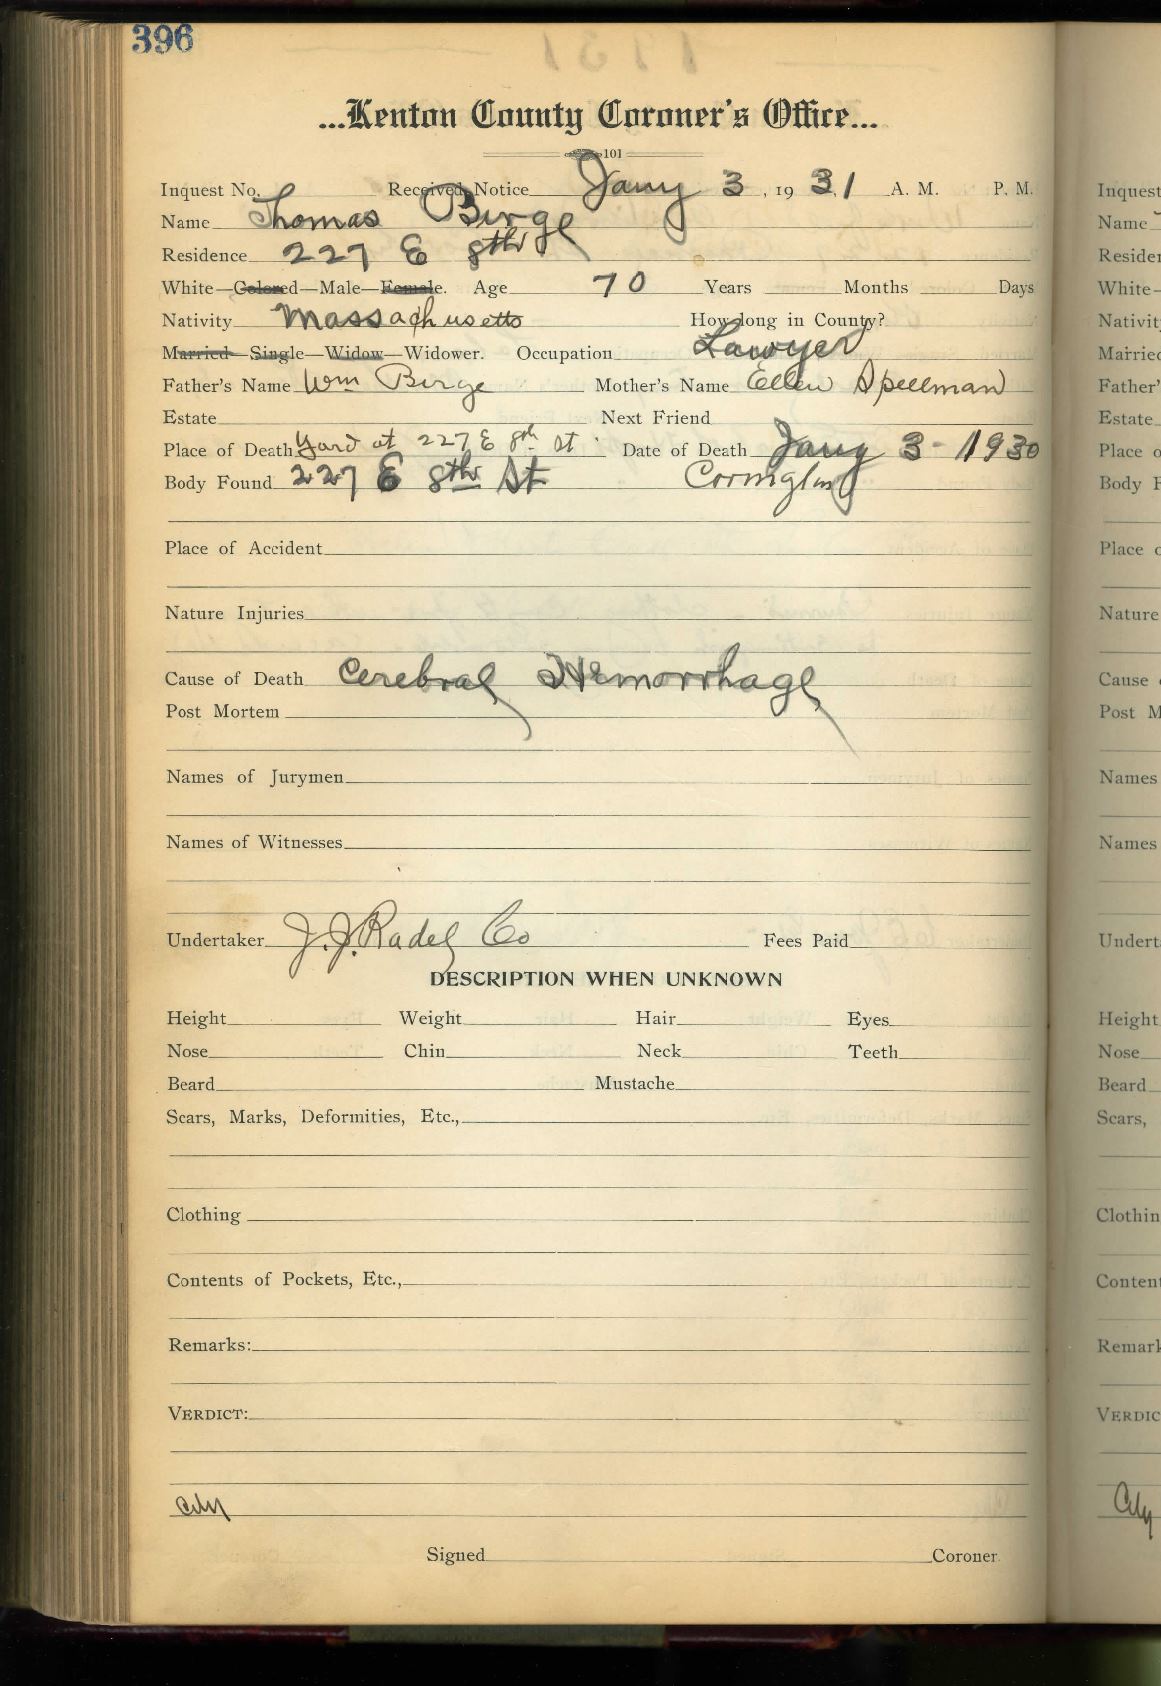 396
...Kenton County Coroner's Office...
101
Inquest No. Received Notice Jany 3, 1931 A. M. P. M.
Name Thomas Birge
Residence 227 E 8th
White—Colored—Male—Female. Age 70 Years Months Days
Nativity Massachusetts How long in County?
Married—Single—Widow—Widower. Occupation Lawyer
Father's Name Wm Birge Mother's Name Ellen Spellman
Estate Next Friend
Place of Death Yard at 227 E 8th St Date of Death Jany 3 - 1930
Body Found 227 E 8th St Covington
Place of Accident
Nature Injuries
Cause of Death Cerebral Hemorrhage
Post Mortem
Names of Jurymen
Names of Witnesses
Undertaker J. J. Radel Co Fees Paid
DESCRIPTION WHEN UNKNOWN
Height Weight Hair Eyes
Nose Chin Neck Teeth
Beard Mustache
Scars, Marks, Deformities, Etc.,
Clothing
Contents of Pockets, Etc.,
Remarks:
VERDICT:
City
Signed Coroner.
Inquest
Name
Reside
White—
Nativity
Married
Father'
Estate
Place o
Body F
Place o
Nature
Cause
Post M
Names
Names
Undert
Height
Nose
Beard
Scars,
Clothin
Content
Remark
VERDIC
City